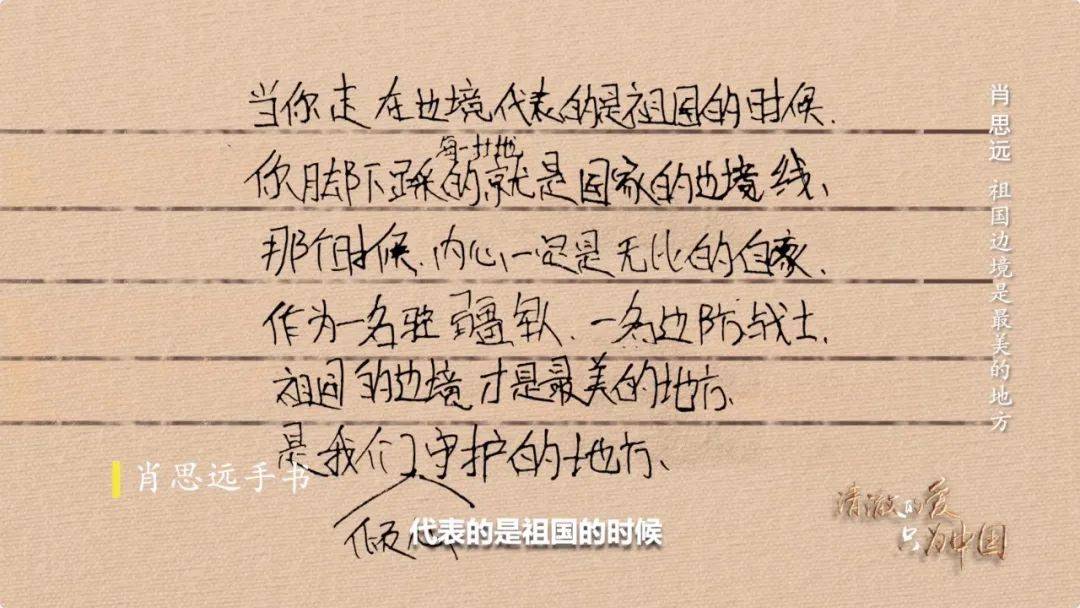 当你走在边境代表的是祖国的时候.
每一寸地
你脚下踩的就是国家的边境线、
那个时候.内心一定是无比的自豪.
作为一名驻疆军人.一名边防战士.
祖国的边境才是最美的地方.
是我们守护的地方、
倾心
肖思远手书
代表的是祖国的时候
肖思远 祖国边境是最美的地方
清澈的爱
只为中国